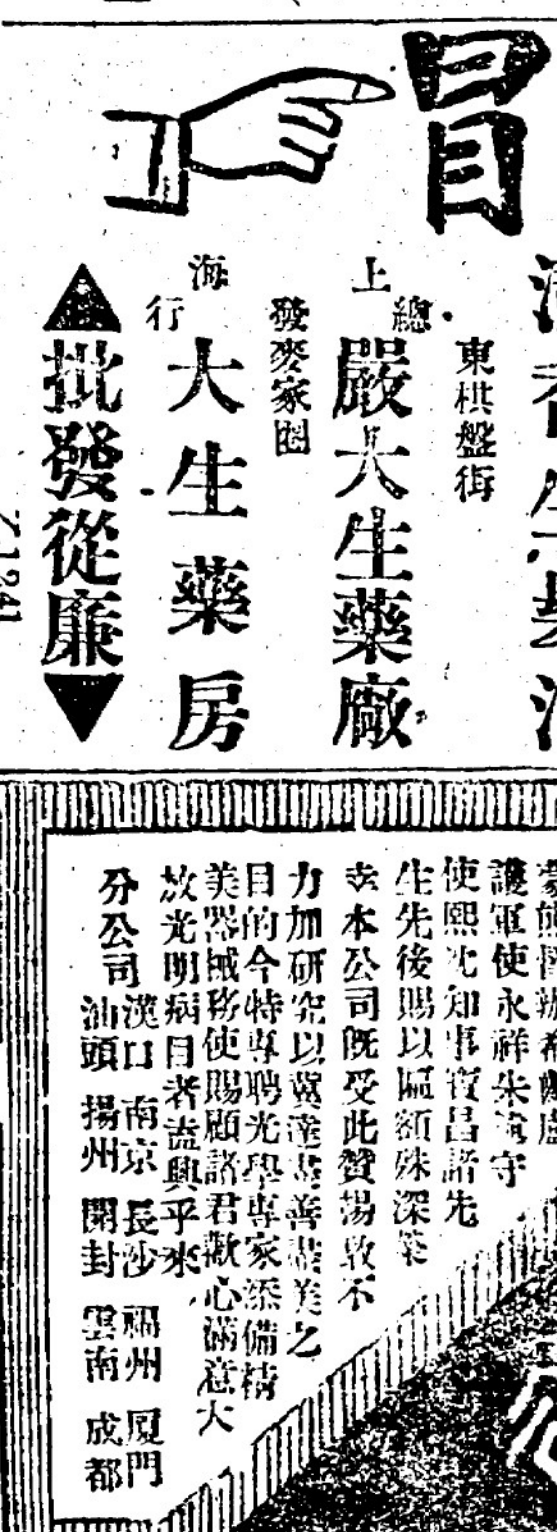 冒
東棋盤街
上
總
嚴大生藥廠
發麥家圈
海
行
大生藥房
批發從廉
護軍使永祥朱道守
使熙沈知事寶昌諸先
生先後賜以匾額殊深榮
幸本公司既受此贊揚敢不
力加研究以冀達盡善盡美之
目的今特專聘光學專家添備精
美器械務使賜顧諸君歡心滿意大
放光明病目者盍興乎來
分公司
漢口 南京 長沙 福州 厦門
汕頭 揚州 開封 雲南 成都